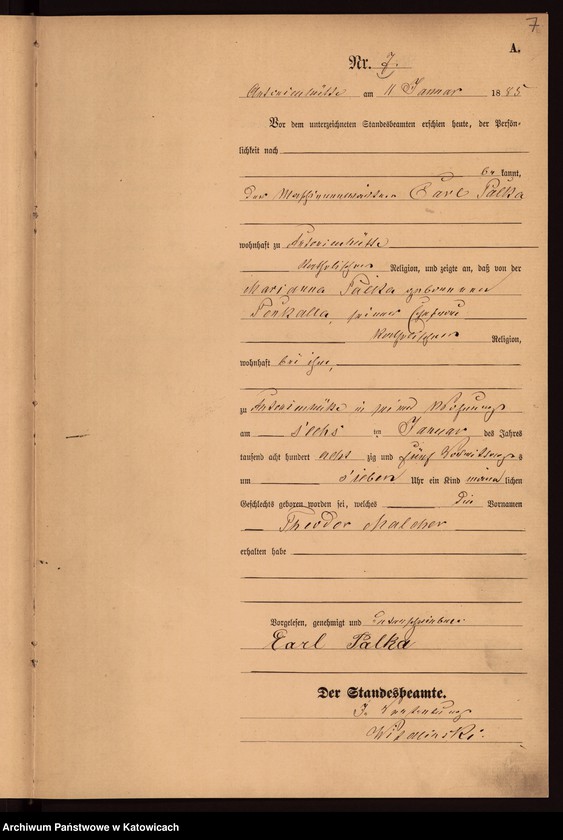 7
A.
Nr. 7.
Antonienhütte am 11 Januar 1885
Vor dem unterzeichneten Standesbeamten erschien heute, der Persön-
lichkeit nach
be kannt,
der Maschinenwärter Carl Palka
wohnhaft zu Antonienhütte
katholischer Religion, und zeigte an, daß von der
Marianna Palka geborenen
seiner Ehefrau
katholischer Religion,
wohnhaft bei ihm,
zu Antonienhütte in seiner Wohnung
am sechs ten Januar des Jahres
tausend acht hundert acht zig und fünf Vormittags
um sieben Uhr ein Kind männ lichen
Geschlechts geboren worden sei, welches die Vornamen
Theodor Malcher
erhalten habe
Vorgelesen, genehmigt und unterschrieben
Carl Palka
Der Standesbeamte.
In Vertretung
Archiwum Państwowe w Katowicach